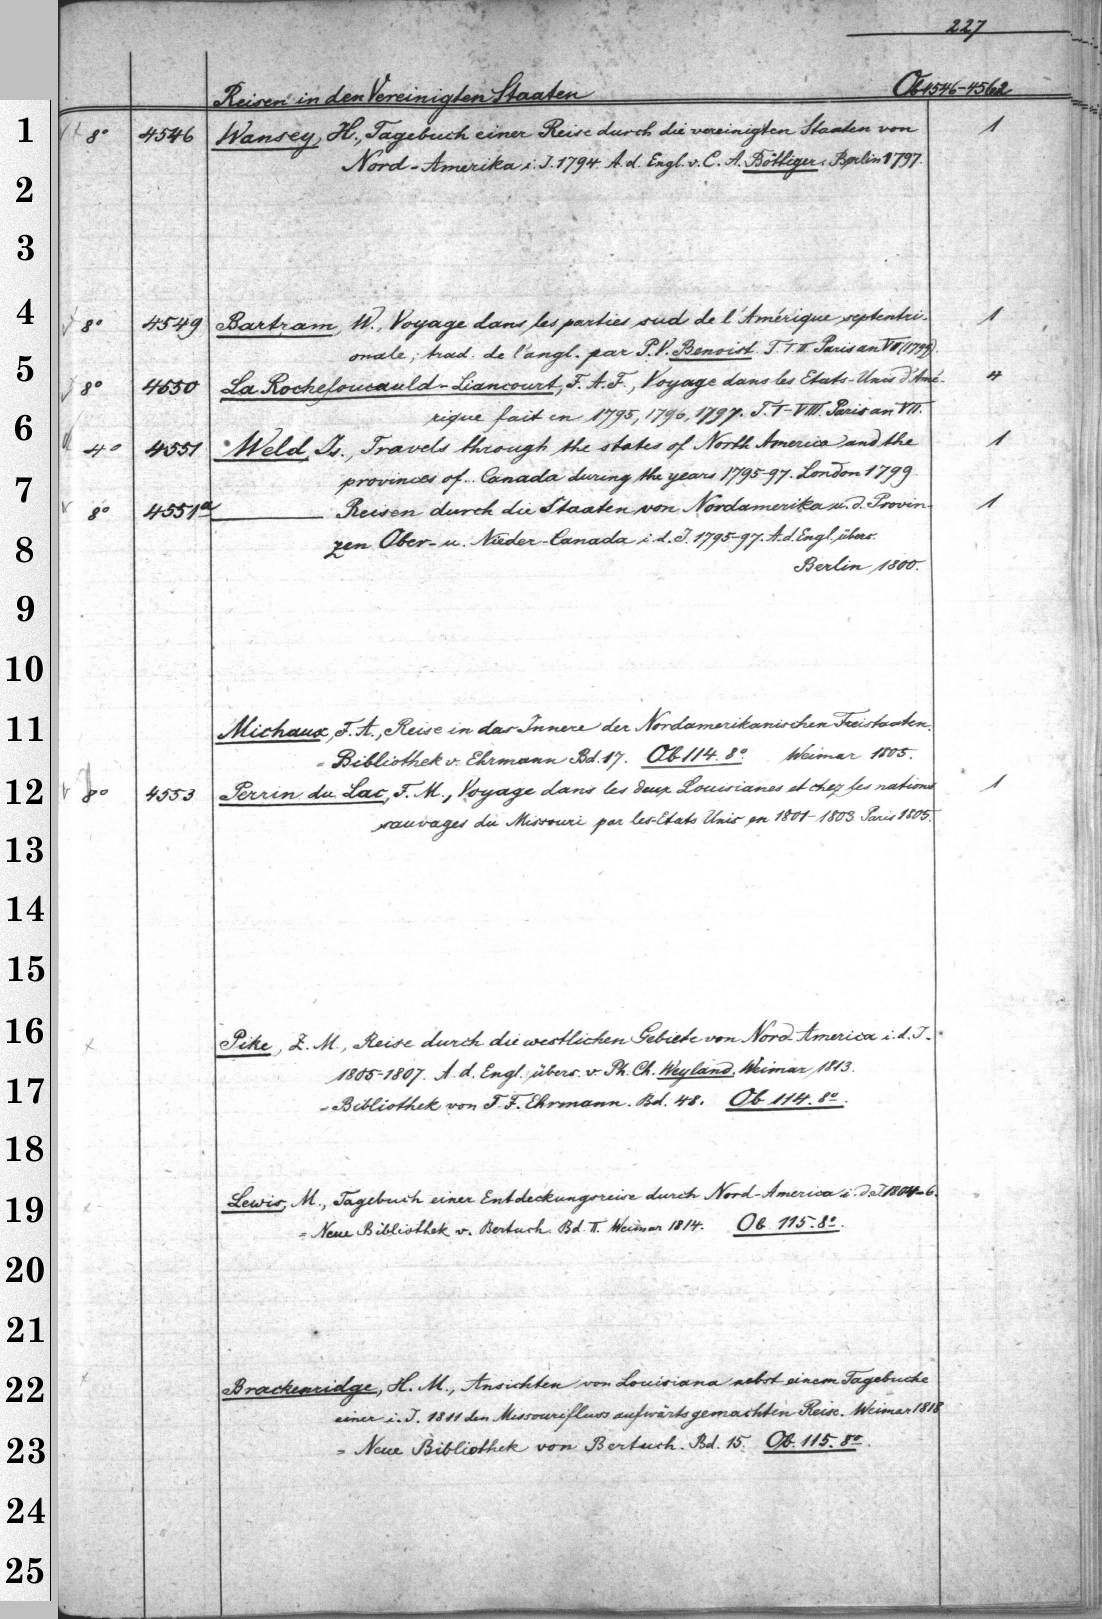 227
Reisen in den Vereinigten Staaten Ob 4546-4562
1 8° 4546 Wansey, H., Tagebuch einer Reise durch die vereinigten Staaten von 1
Nord-Amerika i. J. 1794. A. d. Engl. v. C. A. Böttiger. Berlin 1797.
2
3
4 8° 4549 Bartram, W., Voyage dans les parties sud de l'Amérique septentri- 1
onale; trad. de l'angl. par P. V. Benoist. T. I II. Paris an VII (1799).
5 8° 4550 La Rochefoucauld-Liancourt, F. A. F., Voyage dans les Etats-Unis d'Amé- 4
rique fait en 1795, 1796, 1797. T. I-VIII. Paris an VII.
6 4° 4551 Weld, Is., Travels through the states of North America and the 1
provinces of.. Canada during the years 1795-97. London 1799.
7 8° 4551a ——— Reisen durch die Staaten von Nordamerika u. d. Provin- 1
8 zen Ober- u. Nieder-Canada i. d. J. 1795-97. A. d. Engl. übers.
Berlin 1800.
9
10
11 Michaux, F. A., Reise in das Innere der Nordamerikanischen Freistaaten.
= Bibliothek v. Ehrmann Bd. 17. Ob 114. 8° Weimar 1805.
12 8° 4553 Perrin du Lac, F. M., Voyage dans les deux Louisianes et chez les nations 1
sauvages du Missouri par les Etats Unis en 1801-1803. Paris 1805.
13
14
15
16 Pike, Z. M., Reise durch die westlichen Gebiete von Nord-America i. d. J.
1805-1807. A. d. Engl. übers. v. Ph. Ch. Weyland. Weimar 1813.
17 = Bibliothek von T. F. Ehrmann. Bd. 48. Ob 114. 8°.
18
19 Lewis, M., Tagebuch einer Entdeckungsreise durch Nord-America i. d. J. 1804-6.
= Neue Bibliothek v. Bertuch. Bd. II. Weimar 1814. Ob. 115. 8°.
20
21
22 Brackenridge, H. M., Ansichten von Louisiana nebst einem Tagebuche
einer i. J. 1811 den Missourifluss aufwärts gemachten Reise. Weimar 1818
23 = Neue Bibliothek von Bertuch. Bd. 15. Ob. 115. 8°.
24
25